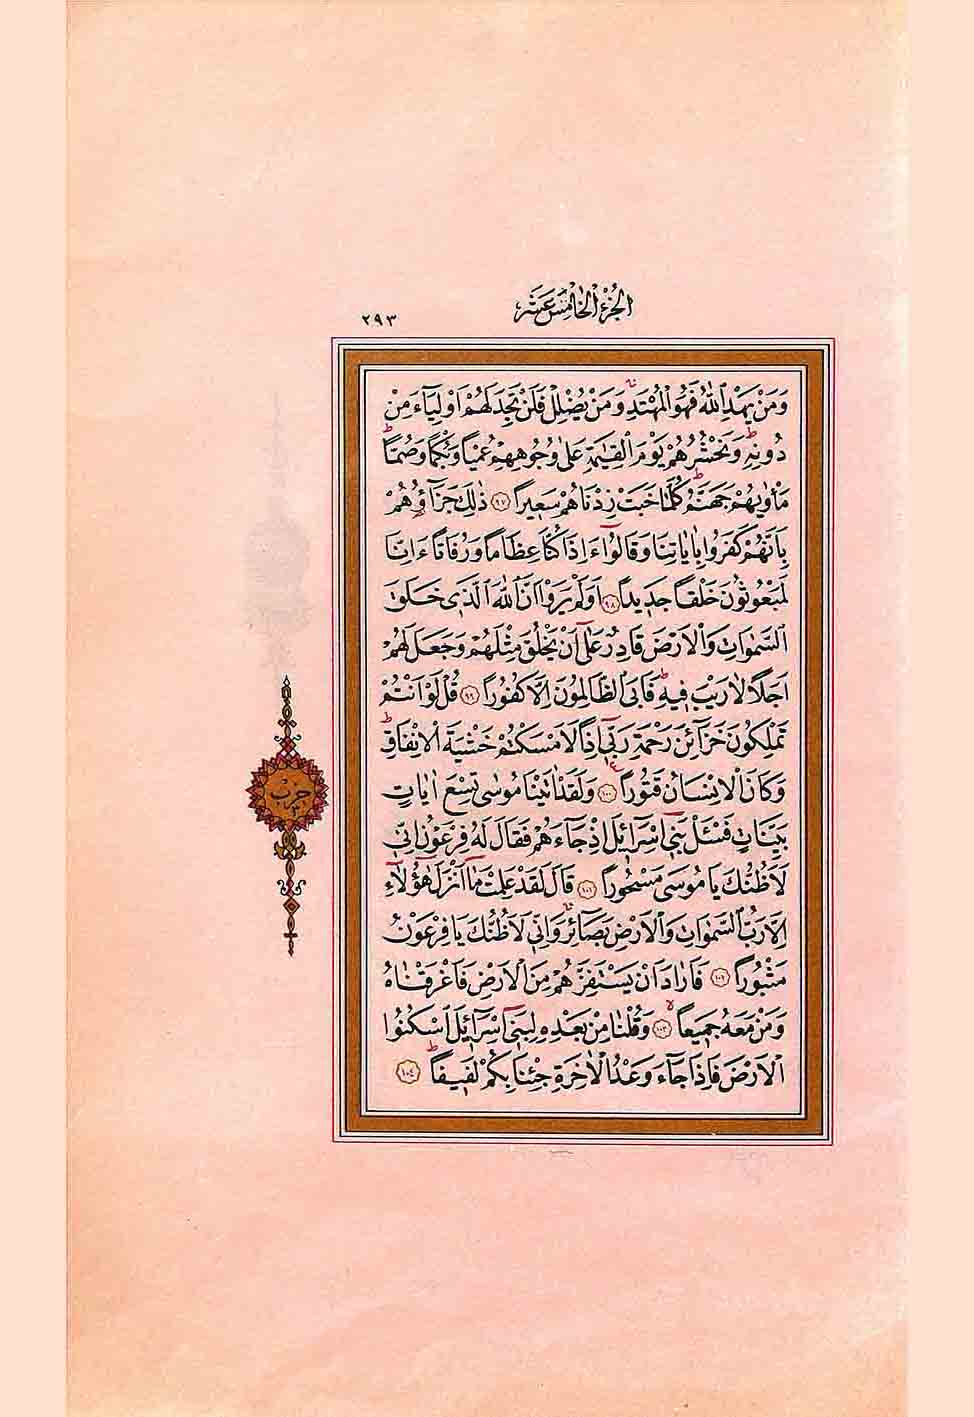 الجزء الخامس عشر
٢٩٣
وَمَنْ يَهْدِ اللّٰهُ فَهُوَ الْمُهْتَدِ وَمَنْ يُضْلِلْ فَلَنْ تَجِدَ لَهُمْ اَوْلِيَٓاءَ مِنْ
دُونِهِ وَنَحْشُرُهُمْ يَوْمَ الْقِيٰمَةِ عَلٰى وُجُوهِهِمْ عُمْيًا وَبُكْمًا وَصُمًّا
مَأْوٰيهُمْ جَهَنَّمُ كُلَّمَا خَبَتْ زِدْنَاهُمْ سَعِيرًا ٩٧ ذٰلِكَ جَزَٓاؤُهُمْ
بِاَنَّهُمْ كَفَرُوا بِاٰيَاتِنَا وَقَالُٓوا ءَاِذَا كُنَّا عِظَامًا وَرُفَاتًا ءَاِنَّا
لَمَبْعُوثُونَ خَلْقًا جَدِيدًا ٩٨ اَوَلَمْ يَرَوْا اَنَّ اللّٰهَ الَّذِي خَلَقَ
السَّمٰوَاتِ وَالْاَرْضَ قَادِرٌ عَلٰٓى اَنْ يَخْلُقَ مِثْلَهُمْ وَجَعَلَ لَهُمْ
اَجَلًا لَا رَيْبَ فِيهِ فَاَبَى الظَّالِمُونَ اِلَّا كُفُورًا ٩٩ قُلْ لَوْ اَنْتُمْ
تَمْلِكُونَ خَزَٓائِنَ رَحْمَةِ رَبِّٓي اِذًا لَاَمْسَكْتُمْ خَشْيَةَ الْاِنْفَاقِ
وَكَانَ الْاِنْسَانُ قَتُورًا ١٠٠ وَلَقَدْ اٰتَيْنَا مُوسٰى تِسْعَ اٰيَاتٍ
بَيِّنَاتٍ فَسْـَٔلْ بَنِٓي اِسْرَٓائِلَ اِذْ جَٓاءَهُمْ فَقَالَ لَهُ فِرْعَوْنُ اِنِّي
لَاَظُنُّكَ يَا مُوسٰى مَسْحُورًا ١٠١ قَالَ لَقَدْ عَلِمْتَ مَٓا اَنْزَلَ هٰٓؤُلَٓاءِ
اِلَّا رَبُّ السَّمٰوَاتِ وَالْاَرْضِ بَصَٓائِرَ وَاِنِّي لَاَظُنُّكَ يَا فِرْعَوْنُ
مَثْبُورًا ١٠٢ فَاَرَادَ اَنْ يَسْتَفِزَّهُمْ مِنَ الْاَرْضِ فَاَغْرَقْنَاهُ
وَمَنْ مَعَهُ جَمِيعًا ١٠٣ وَقُلْنَا مِنْ بَعْدِهِ لِبَنِٓي اِسْرَٓائِلَ اسْكُنُوا
الْاَرْضَ فَاِذَا جَٓاءَ وَعْدُ الْاٰخِرَةِ جِئْنَا بِكُمْ لَفِيفًا ١٠٤
حزب
٣